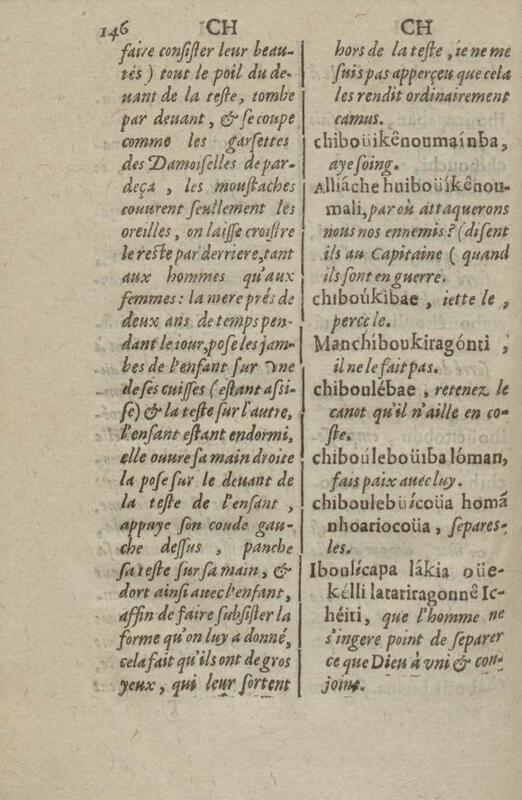 146 CH CH
faire consister leur beau-
tés ) tout le poil du de-
uant de la teste, tombe
par deuant, & se coupe
comme les garsettes
des Damoiselles de par-
deça, les moustaches
couurent seullement les
oreilles, on laisse croistre
le reste par derriere, tant
aux hommes qu'aux
femmes : la mere prés de
deux ans de temps pen-
dant le iour, pose les jam-
bes de l'enfant sur vne
de ses cuisses ( estant assi-
se) & la teste sur l'autre,
l'enfant estant endormi,
elle ouure sa main droite
la pose sur le deuant de
la teste de l'enfant,
appuye son coude gau-
che dessus, panche
sa teste sur sa main, &
dort ainsi auec l'enfant,
affin de faire subsister la
forme qu'on luy a donné,
cela fait qu'ils ont de gros
yeux, qui leur sortent
hors de la teste, ie ne me
suis pas apperçeu que cela
les rendit ordinairement
camus.
chiboüikênoumaínba,
aye soing.
Alliáche huiboüíkênou-
mali, par où attaquerons
nous nos ennemis ? (disent
ils au Capitaine ( quand
ils sont en guerre.
chiboúkibae, iette le,
perce le.
Manchiboukiragónti,
il ne le fait pas.
chiboulébae, retenez le
canot qu'il n'aille en co-
ste.
chibouleboüiba lóman,
fais paix auec luy.
chiboulebüícoüa homá
nhoariocoüa, separes-
les.
Iboulícapa lákia oüe-
kélli latariragonnê Ic-
héiti, que l'homme ne
s'ingere point de separer
ce que Dieu à vni & con-
joint.